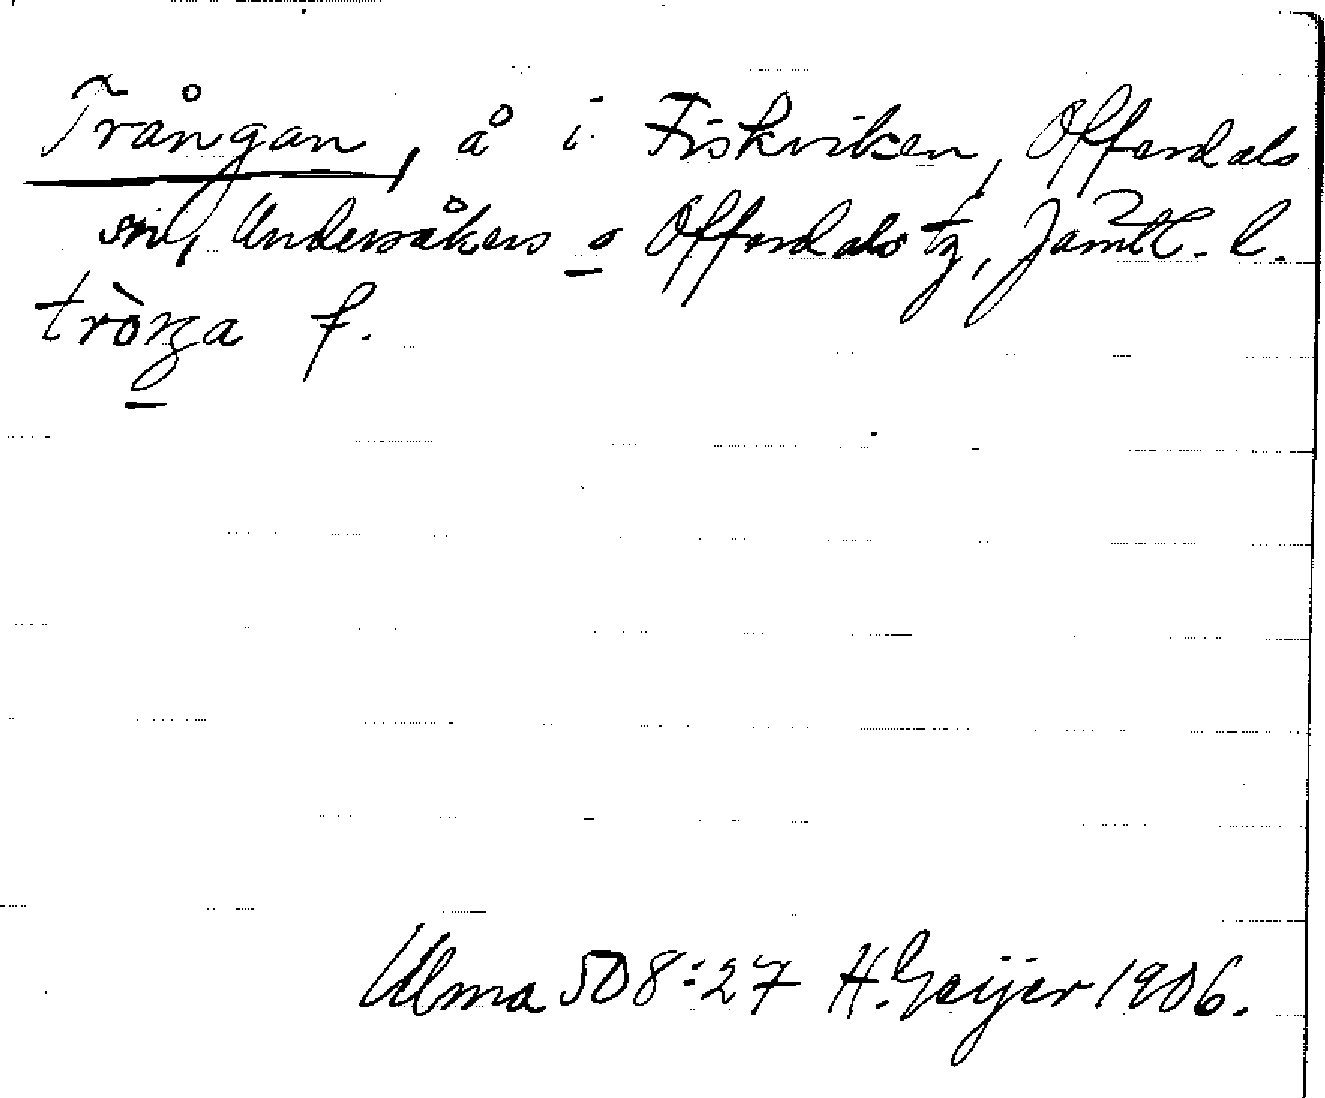 Trångan, å i Fiskviken, Offerdals
sn, Undersåkers o Offerdals tg, Jämtl. l.
tròŋa f.
Ulma 508:27 H. Geijer 1906.